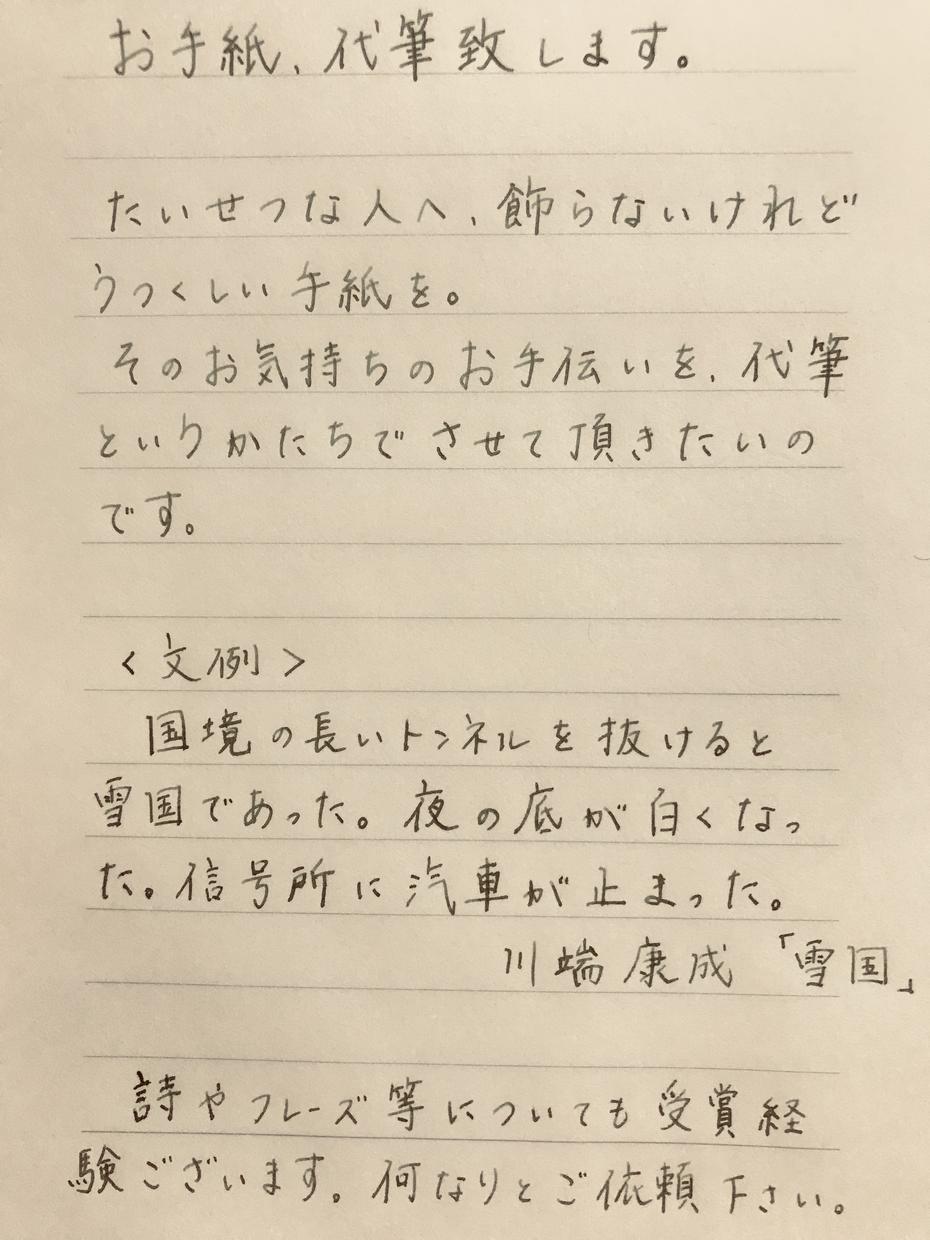 お手紙、代筆致します。
たいせつな人へ、飾らないけれど
うつくしい手紙を。
そのお気持ちのお手伝いを、代筆
というかたちでさせて頂きたいの
です。
<文例>
国境の長いトンネルを抜けると
雪国であった。夜の底が白くなっ
た。信号所に汽車が止まった。
川端康成「雪国」
詩やフレーズ等についても受賞経
験ございます。何なりとご依頼下さい。